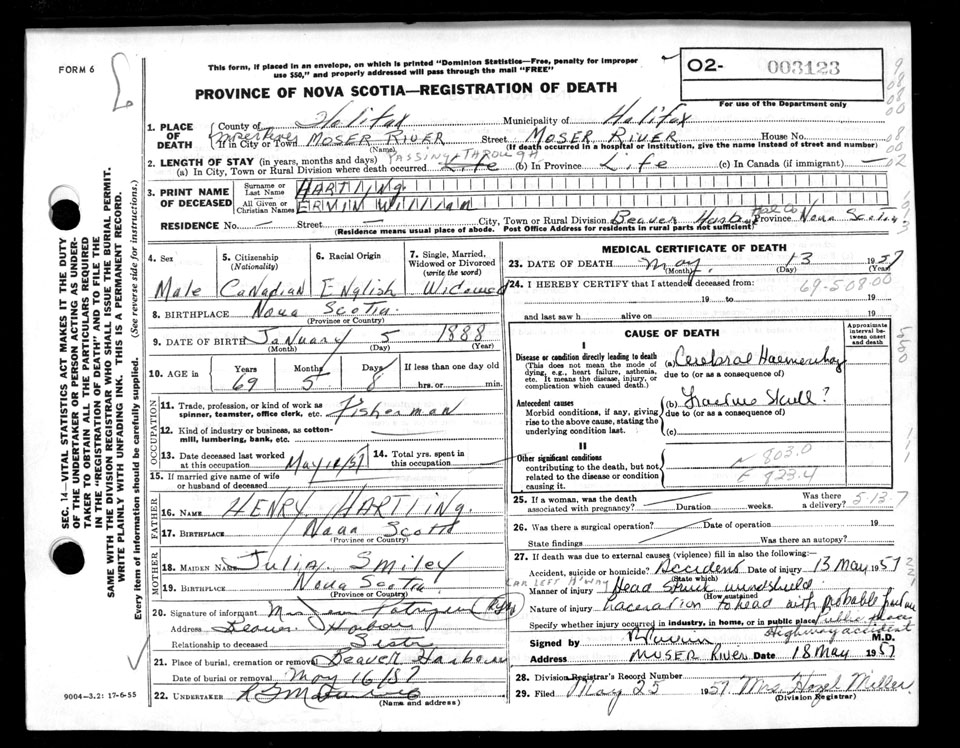 FORM 6
This form, if placed in an envelope, on which is printed "Dominion Statistics—Free, penalty for improper
use $50," and properly addressed will pass through the mail "FREE"
PROVINCE OF NOVA SCOTIA—REGISTRATION OF DEATH
O2- 003123
For use of the Department only
SEC. 14—VITAL STATISTICS ACT MAKES IT THE DUTY
OF THE UNDERTAKER OR PERSON ACTING AS UNDER-
TAKER TO OBTAIN ALL THE PARTICULARS REQUIRED
IN THE "REGISTRATION OF DEATH" AND TO FILE THE
SAME WITH THE DIVISION REGISTRAR WHO SHALL ISSUE THE BURIAL PERMIT.
WRITE PLAINLY WITH UNFADING INK. THIS IS A PERMANENT RECORD.
Every item of information should be carefully supplied. (See reverse side for instructions.)
1. PLACE OF DEATH County of Halifax Municipality of Halifax
If in City or Town MOSER RIVER Street MOSER RIVER House No.
(Name) (If death occurred in a hospital or institution, give the name instead of street and number)
2. LENGTH OF STAY (in years, months and days) PASSING THROUGH
(a) In City, Town or Rural Division where death occurred Life (b) In Province Life (c) In Canada (if immigrant) —
3. PRINT NAME OF DECEASED Surname or Last Name HARTLING
All Given or Christian Names ERMIN William
RESIDENCE No. — Street — City, Town or Rural Division Beaver Harbor Hal Co Province Nova Scotia
(Residence means usual place of abode. Post Office Address for residents in rural parts not sufficient)
4. Sex Male
5. Citizenship (Nationality) Canadian
6. Racial Origin English
7. Single, Married, Widowed or Divorced (write the word) Widowed
8. BIRTHPLACE Nova Scotia
(Province or Country)
9. DATE OF BIRTH January 5 1888
(Month) (Day) (Year)
10. AGE in Years 69 Months 5 Days 8 If less than one day old hrs. or min.
OCCUPATION
11. Trade, profession, or kind of work as spinner, teamster, office clerk, etc. Fisherman
12. Kind of industry or business, as cotton-mill, lumbering, bank, etc.
13. Date deceased last worked at this occupation May 12/57
14. Total yrs. spent in this occupation
15. If married give name of wife or husband of deceased
FATHER
16. NAME HENRY HARTLING
17. BIRTHPLACE Nova Scotia
(Province or Country)
MOTHER
18. MAIDEN NAME Julia Smiley
19. BIRTHPLACE Nova Scotia
(Province or Country)
20. Signature of informant Mrs
Address Beaver Harbour
Relationship to deceased Sister
21. Place of burial, cremation or removal Beaver Harbour
Date of burial or removal May 16/57
22. UNDERTAKER
(Name and address)
9004—3.2: 17-6-55
MEDICAL CERTIFICATE OF DEATH
23. DATE OF DEATH May 13 1957
(Month) (Day) (Year)
24. I HEREBY CERTIFY that I attended deceased from:
69-508.00
19 to 19
and last saw h alive on 19
CAUSE OF DEATH
Approximate interval between onset and death
I
Disease or condition directly leading to death
(This does not mean the mode of dying, e.g., heart failure, asthenia, etc. It means the disease, injury, or complication which caused death.)
(a) Cerebral Haemorrhag
due to (or as a consequence of)
Antecedent causes
Morbid conditions, if any, giving rise to the above cause, stating the underlying condition last.
(b) Fracture Skull?
due to (or as a consequence of)
(c)
II
Other significant conditions
contributing to the death, but not related to the disease or condition causing it.
N 803.0
E 923.4
25. If a woman, was the death associated with pregnancy? Duration weeks. Was there a delivery?
5-13-7
26. Was there a surgical operation? Date of operation 19
State findings Was there an autopsy?
27. If death was due to external causes (violence) fill in also the following:
Accident, suicide or homicide? Accident Date of injury 13 May 1957
(State which)
CAR LEFT H'WAY
Manner of injury Head Struck windshield
(How sustained)
Nature of injury Laceration to head with probable fracture
Specify whether injury occurred in industry, in home, or in public place Public place
Highway accident
Signed by M.D.
Address MOSER RIVER Date 18 May 1957
28. Division Registrar's Record Number
29. Filed May 25 1957 Mrs Hazel Miller
(Division Registrar)